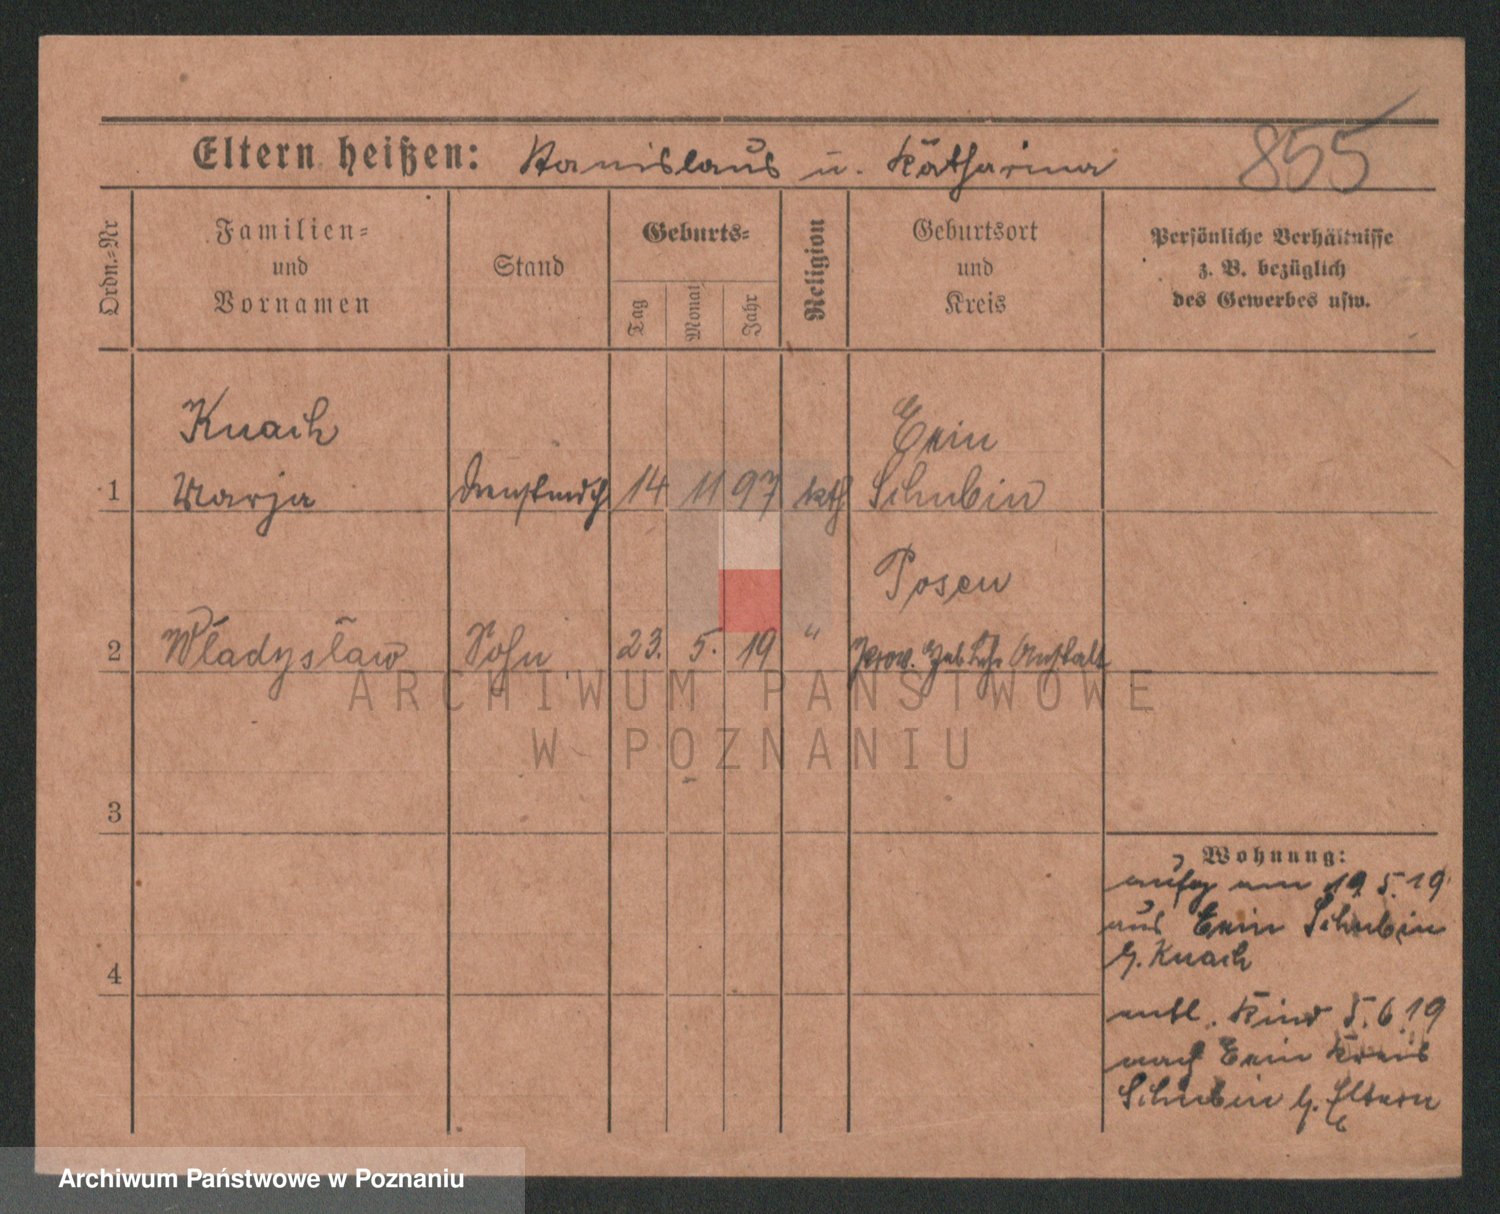 Eltern heißen: Stanislaus u. Katharina 855
Ordn.-Nr
Familien-
und
Vornamen
Stand
Geburts-
Tag
Monat
Jahr
Religion
Geburtsort
und
Kreis
Persönliche Verhältnisse
z. B. bezüglich
des Gewerbes usw.
Knach Exin
1 Marja Dienstmdch 14 11 97 kth Schubin
Posen
2 Władysław Sohn 23. 5. 19 " Prov. Heb. Lehr Anstalt
3
4
Wohnung:
aufg am 19. 5. 19
aus Exin Schubin
b. Knach
entl. Kind 5. 6. 19
nach Exin Kreis
Schubin b. Eltern
ARCHIWUM PAŃSTWOWE
W POZNANIU
Archiwum Państwowe w Poznaniu